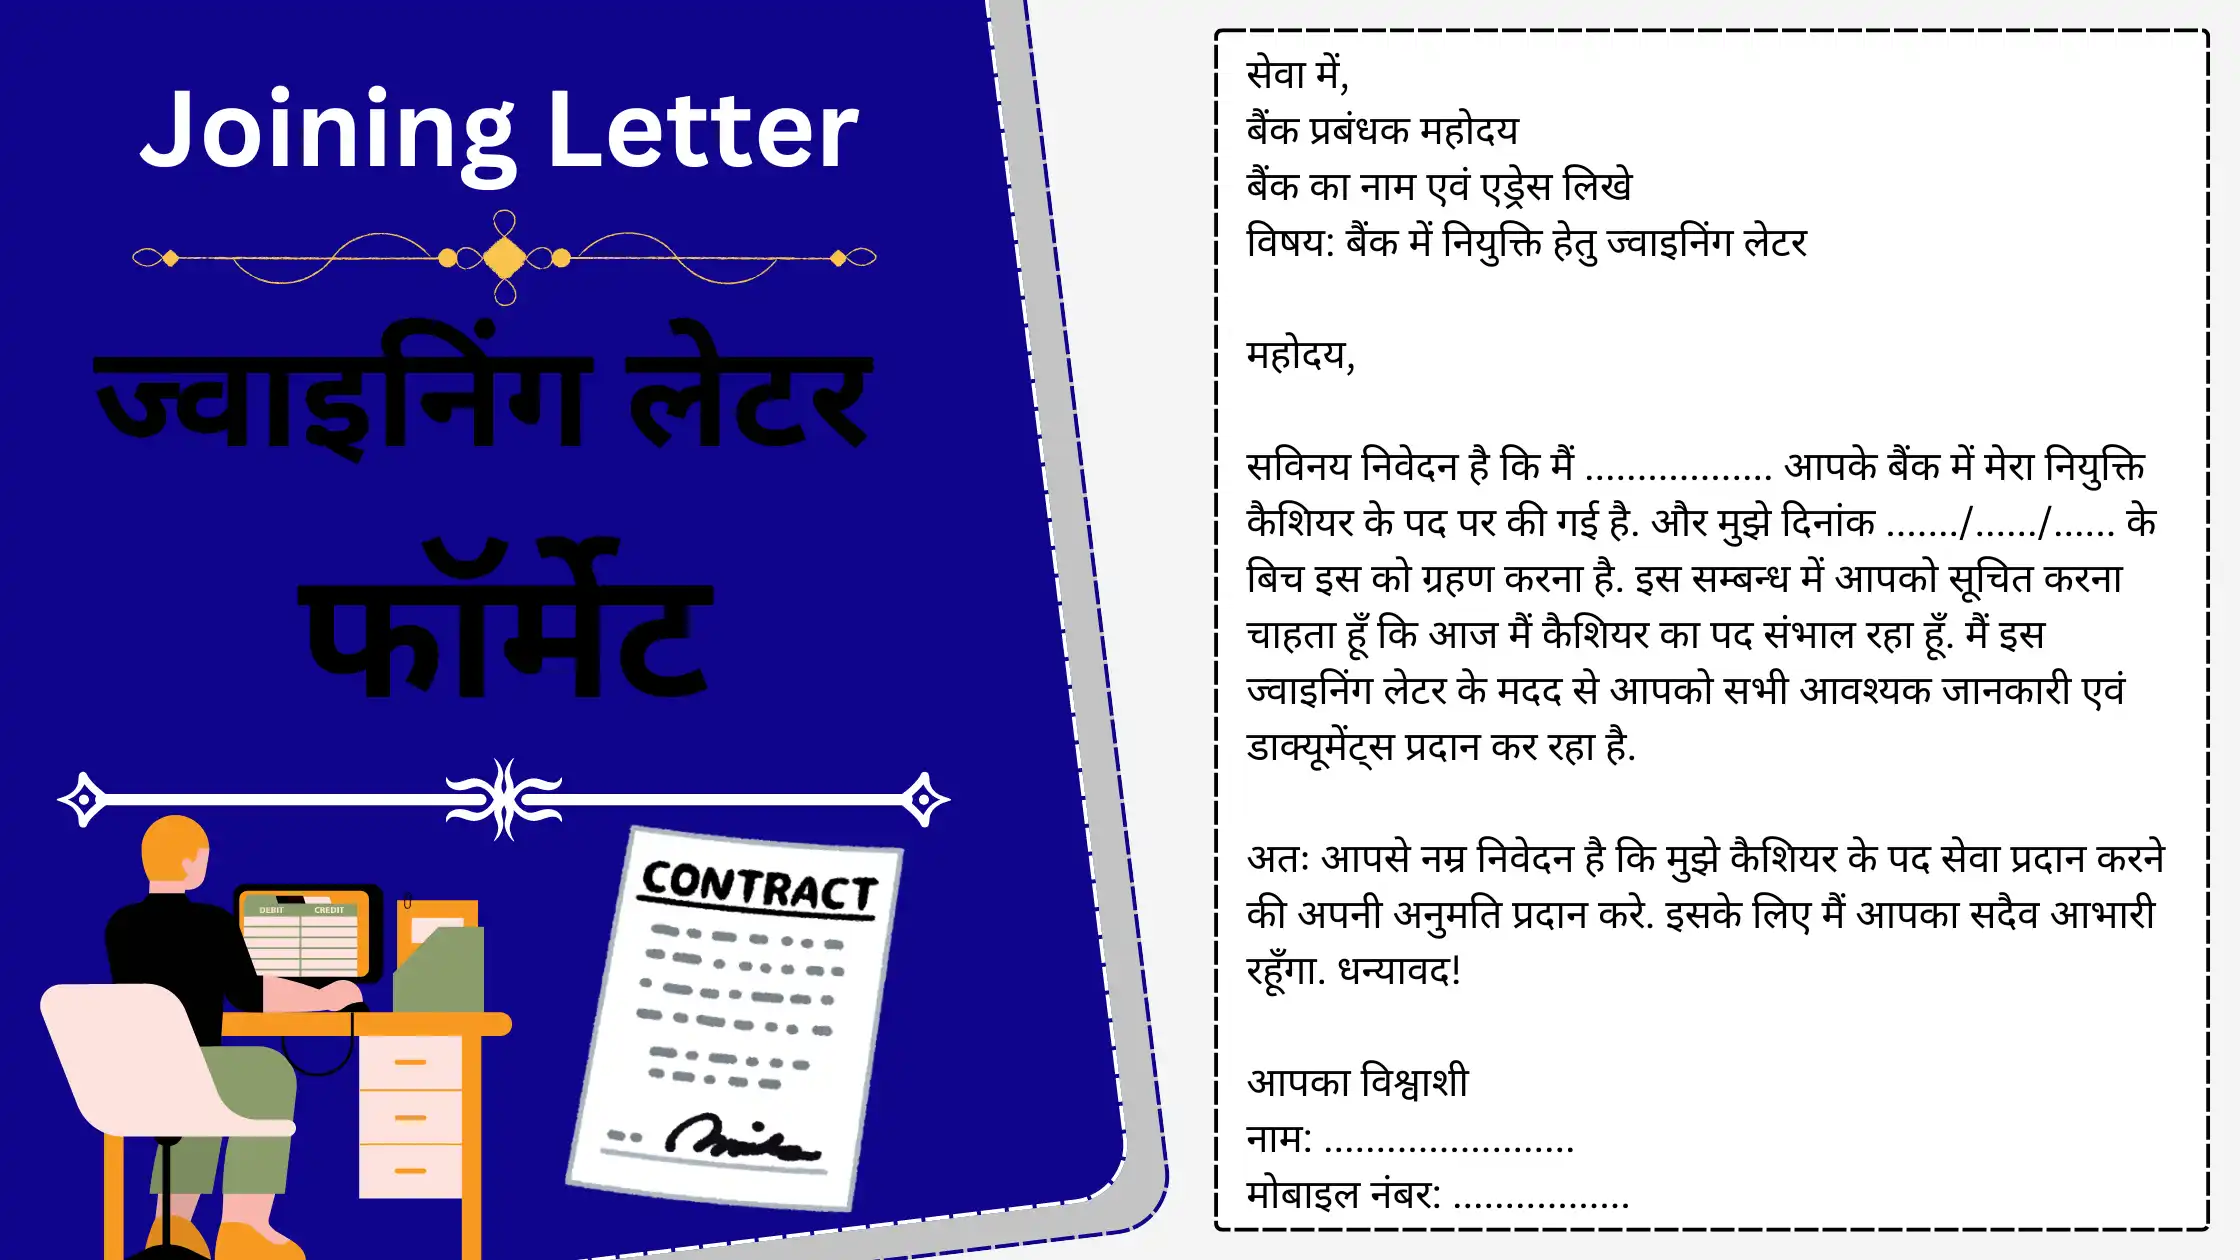 Joining Letter
ज्वाइनिंग लेटर
फॉर्मेट
DEBIT CREDIT
CONTRACT
सेवा में,
बैंक प्रबंधक महोदय
बैंक का नाम एवं एड्रेस लिखे
विषय: बैंक में नियुक्ति हेतु ज्वाइनिंग लेटर
महोदय,
सविनय निवेदन है कि मैं .................. आपके बैंक में मेरा नियुक्ति
कैशियर के पद पर की गई है. और मुझे दिनांक ......./....../...... के
बिच इस को ग्रहण करना है. इस सम्बन्ध में आपको सूचित करना
चाहता हूँ कि आज मैं कैशियर का पद संभाल रहा हूँ. मैं इस
ज्वाइनिंग लेटर के मदद से आपको सभी आवश्यक जानकारी एवं
डाक्यूमेंट्स प्रदान कर रहा है.
अतः आपसे नम्र निवेदन है कि मुझे कैशियर के पद सेवा प्रदान करने
की अपनी अनुमति प्रदान करे. इसके लिए मैं आपका सदैव आभारी
रहूँगा. धन्यावद!
आपका विश्वाशी
नाम: ........................
मोबाइल नंबर: .................